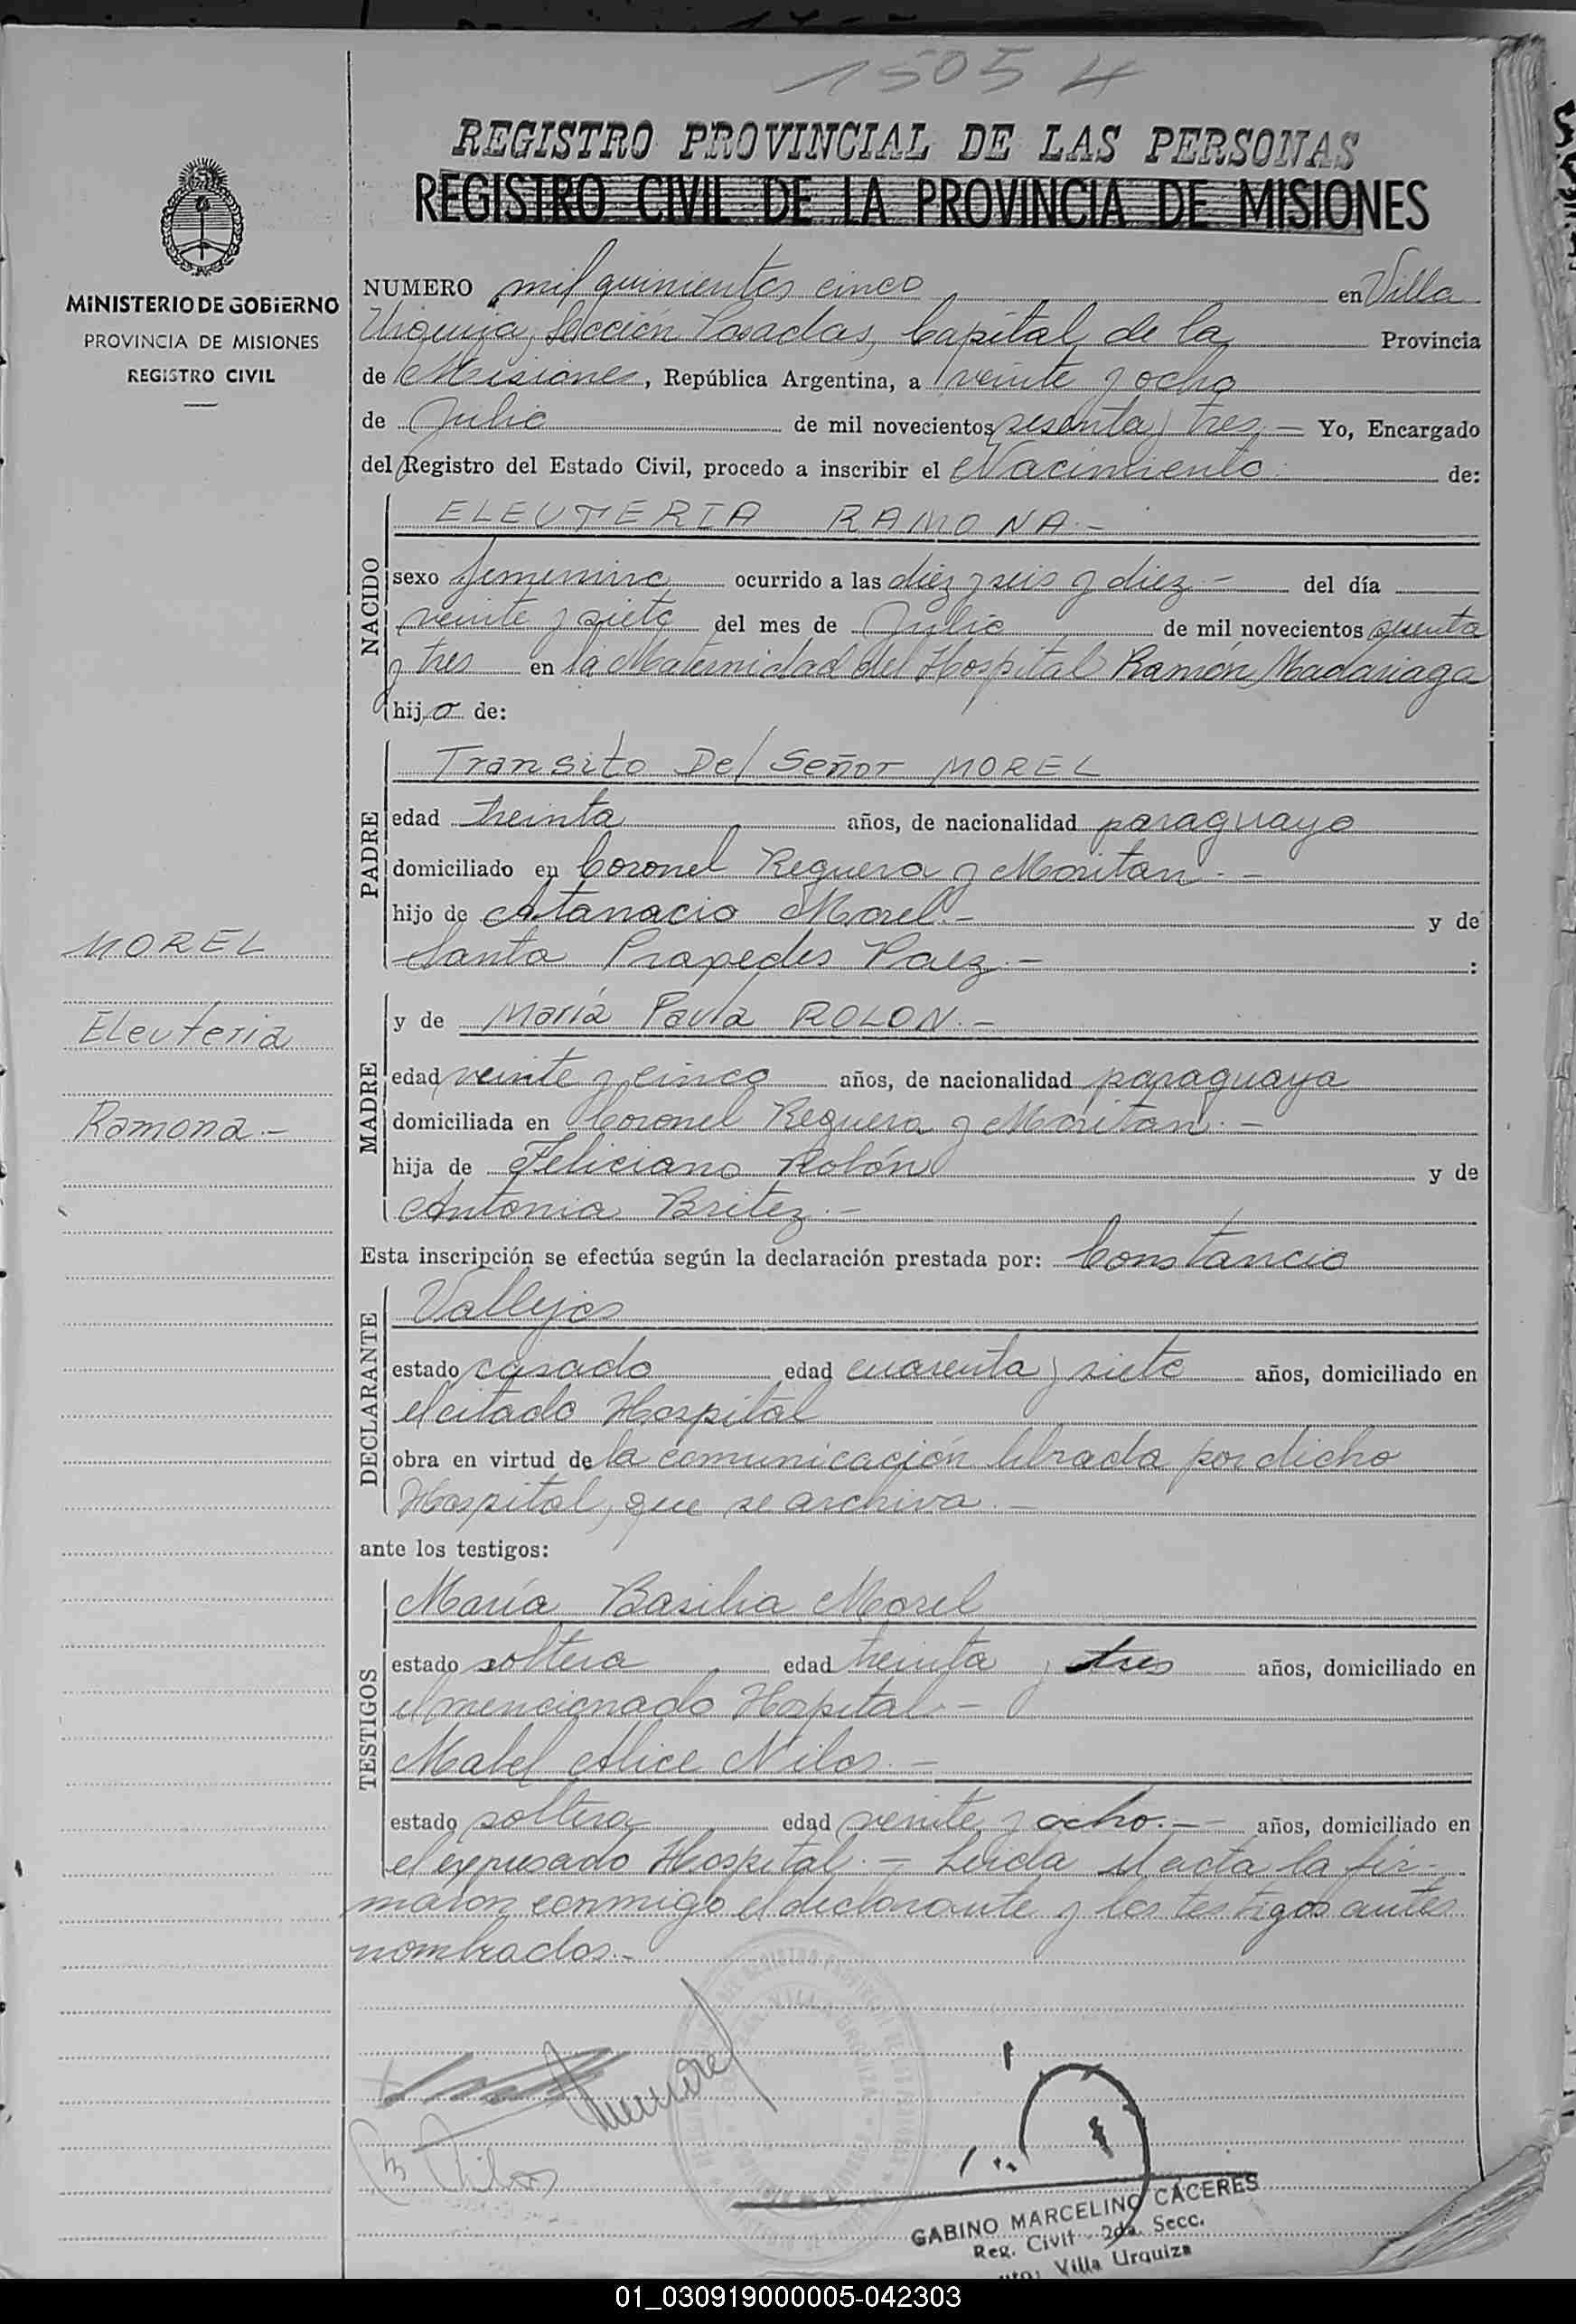 1505 4
REGISTRO PROVINCIAL DE LAS PERSONAS
REGISTRO CIVIL DE LA PROVINCIA DE MISIONES
MINISTERIO DE GOBIERNO
PROVINCIA DE MISIONES
REGISTRO CIVIL
NUMERO mil quinientos cinco en Villa
Urquiza, Sección Posadas, Capital de la Provincia
de Misiones, República Argentina, a veinte y ocho
de Julio de mil novecientos sesenta y tres.— Yo, Encargado
del Registro del Estado Civil, procedo a inscribir el Nacimiento de:
NACIDO
ELEUTERIA RAMONA.-
sexo femenino ocurrido a las diez y seis y diez.- del día
veinte y siete del mes de Julio de mil novecientos sesenta
y tres en la Maternidad del Hospital Ramón Madariaga
hija de:
PADRE
Transito Del Señor MOREL
edad treinta años, de nacionalidad paraguayo
domiciliado en Coronel Reguera y Moritan.-
hijo de Atanacio Morel.- y de
Santa Praxedes Paez.- :
MOREL
Eleuteria
Ramona.-
MADRE
y de María Paula ROLON.-
edad veinte y cinco años, de nacionalidad paraguaya
domiciliada en Coronel Reguera y Moritan.-
hija de Feliciano Rolón y de
Antonia Britez.-
Esta inscripción se efectúa según la declaración prestada por: Constancio
DECLARANTE
Vallejos
estado casado edad cuarenta y siete años, domiciliado en
el citado Hospital
obra en virtud de la comunicación librada por dicho
Hospital, que se archiva.-
ante los testigos:
TESTIGOS
María Basilia Morel
estado soltera edad treinta y tres años, domiciliado en
el mencionado Hospital.-
Mabel Alice Nilos.-
estado soltera edad veinte y ocho.- años, domiciliado en
el expresado Hospital.- Leida el acta la fir-
maron conmigo el declarante y los testigos antes
nombrados.-
GABINO MARCELINO CÁCERES
Reg. Civil - 2da. Secc.
Villa Urquiza
01_030919000005-042303